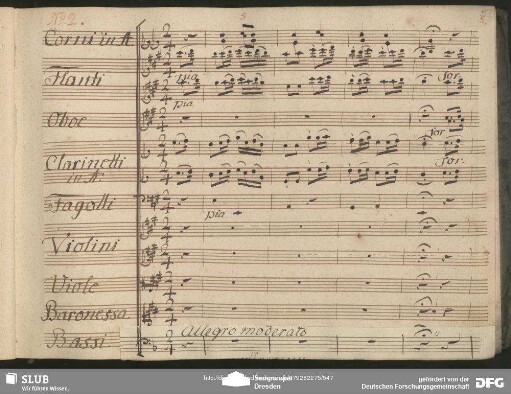 No 2.
Corni in A
Flauti
pia
for.
pia
Oboe
for
Clarinetti
in A.
for.
Fagotti
pia
Violini
Viole
Baronessa.
Allegro moderato
Bassi
SLUB
Wir führen Wissen.
Dresden
gefördert von der
Deutschen Forschungsgemeinschaft
DFG